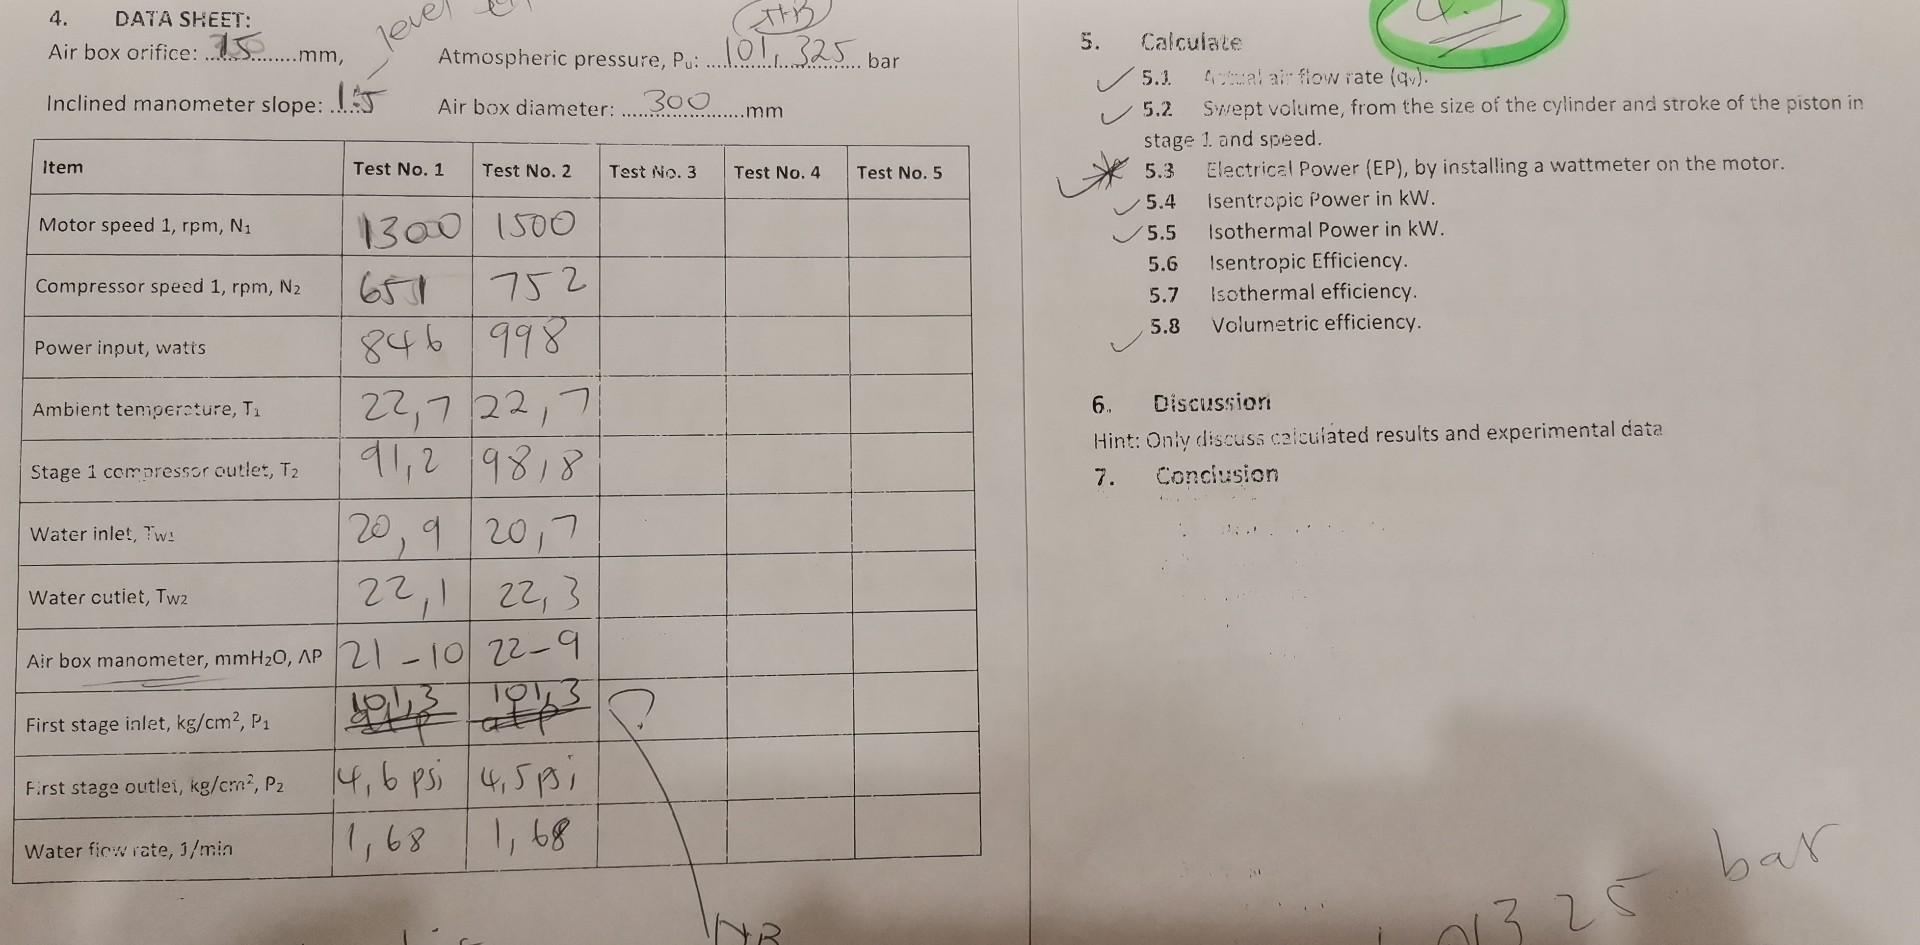 4. DATA SHEET:
level
Air box orifice: ..15........mm,
Atmospheric pressure, Pu: ....101,325.... bar
Inclined manometer slope: .1.5
Air box diameter: ......300......mm
Item Test No. 1 Test No. 2 Test No. 3 Test No. 4 Test No. 5
Motor speed 1, rpm, N1 1300 1500
Compressor speed 1, rpm, N2 651 752
Power input, watts 846 998
Ambient temperature, T1 22,7 22,7
Stage 1 compressor outlet, T2 91,2 98,8
Water inlet, Tw1 20,9 20,7
Water outlet, Tw2 22,1 22,3
Air box manometer, mmH2O, ΛP 21-10 22-9
First stage inlet, kg/cm², P1 101,3 atp 101,3 atp ?
First stage outlet, kg/cm², P2 4,6 psi 4,5 psi
Water flow rate, J/min 1,68 1,68
NB
5. Calculate
5.1 Actual air flow rate (qv).
5.2 Swept volume, from the size of the cylinder and stroke of the piston in
stage 1 and speed.
5.3 Electrical Power (EP), by installing a wattmeter on the motor.
5.4 Isentropic Power in kW.
5.5 Isothermal Power in kW.
5.6 Isentropic Efficiency.
5.7 Isothermal efficiency.
5.8 Volumetric efficiency.
6. Discussion
Hint: Only discuss calculated results and experimental data
7. Conclusion
1,01325 bar